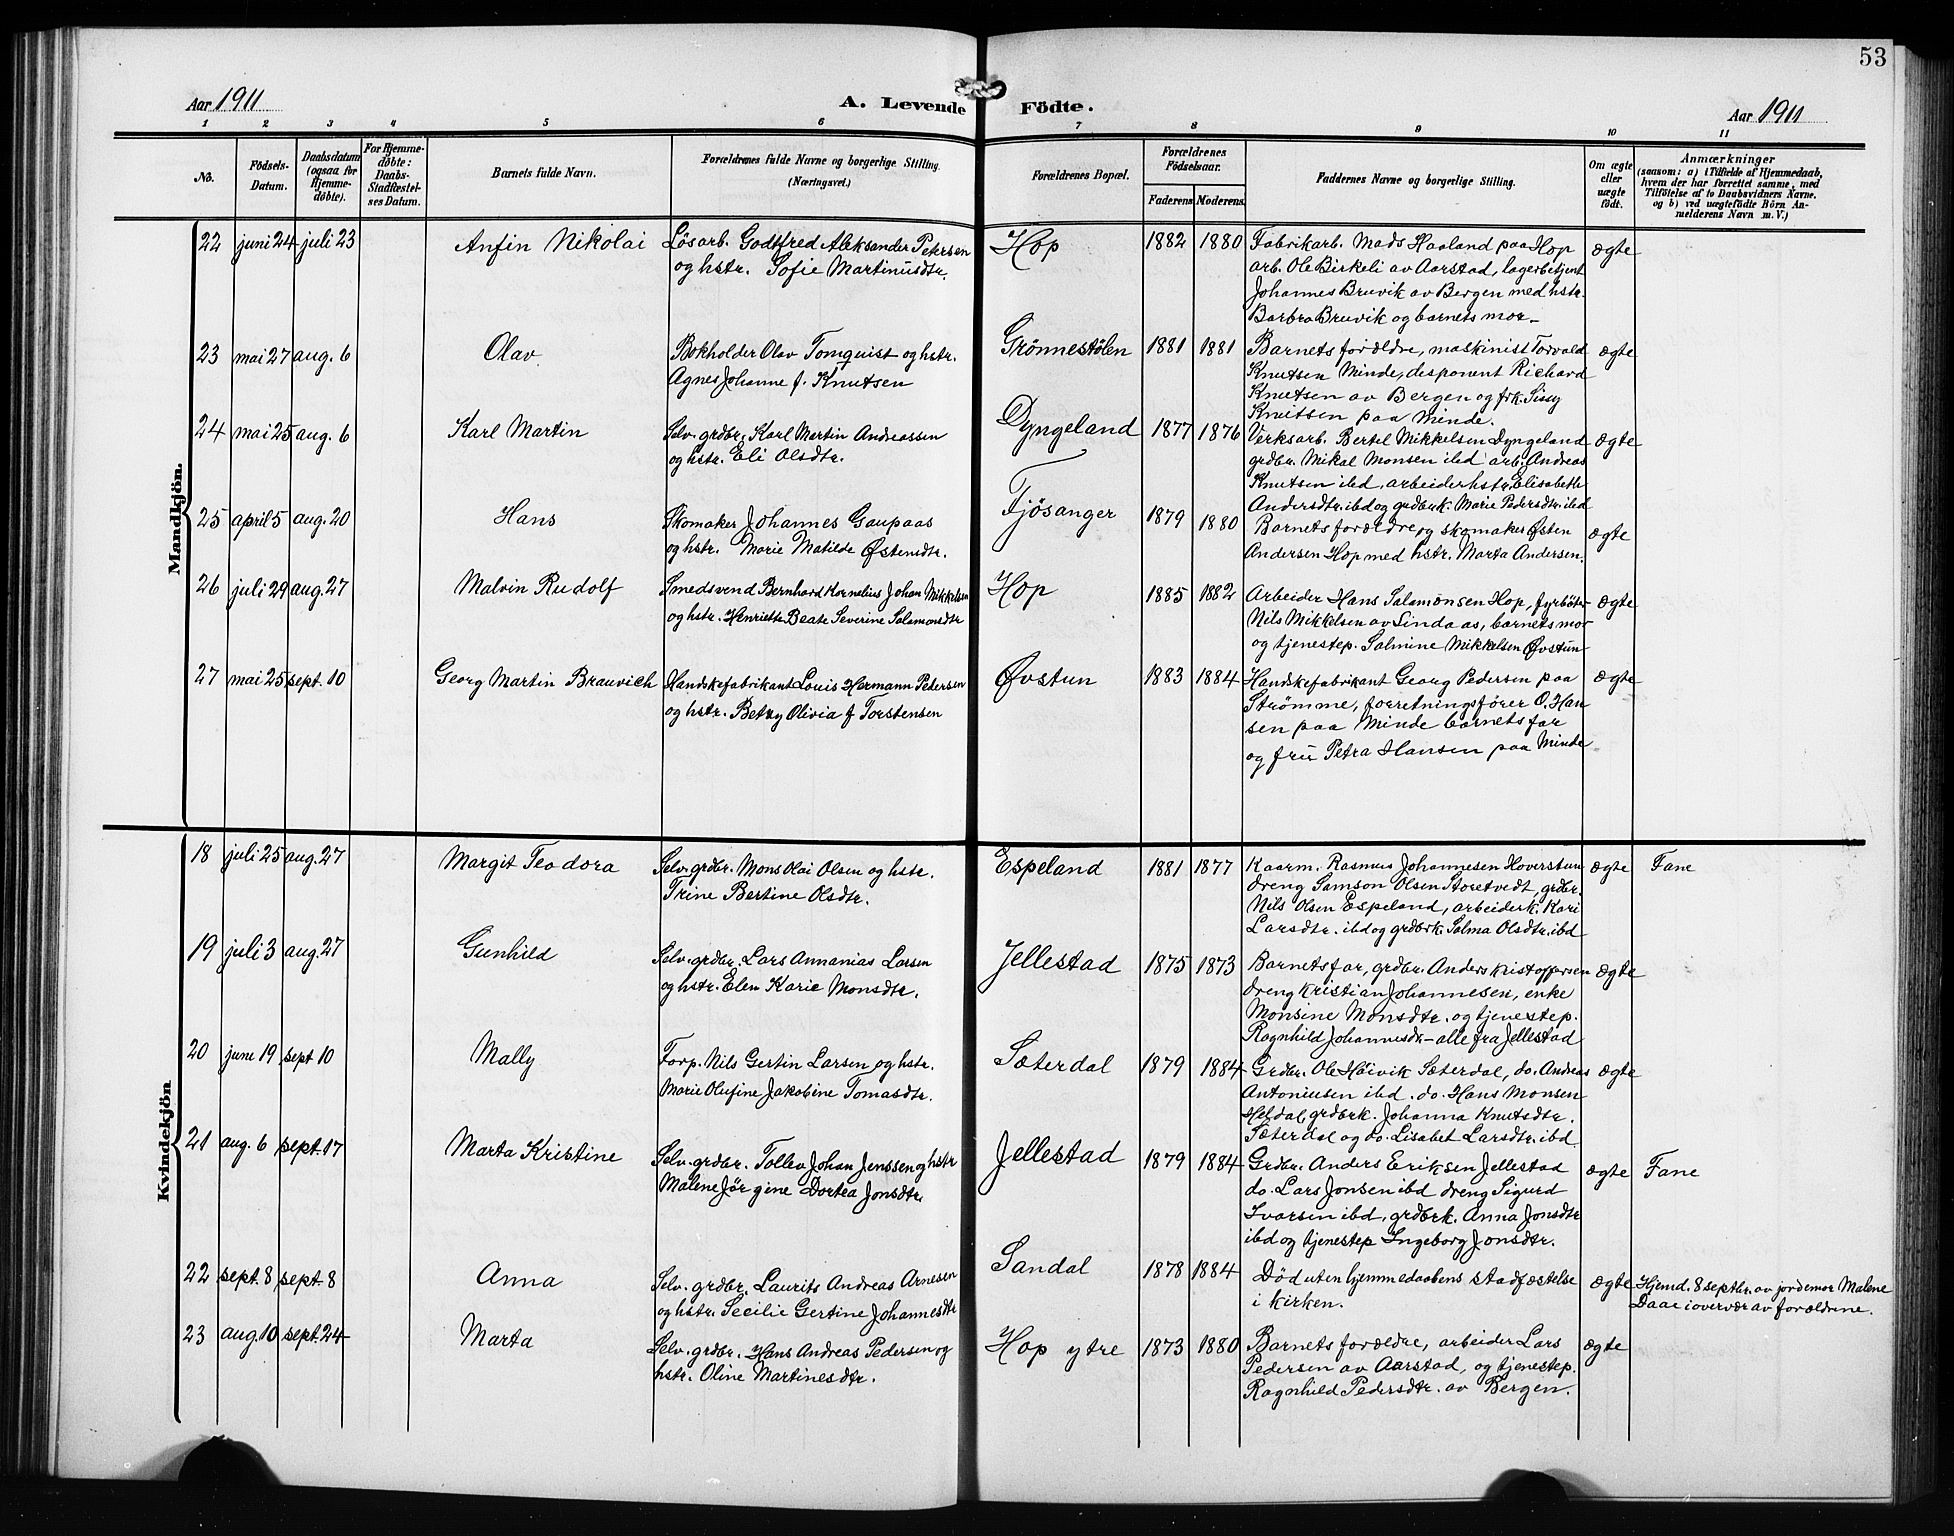 53
Aar 1911
A. Levende Födte.
Aar 1911
1 2 3 4 5 6 7 8 9 10 11
No.
Födsels-
Datum.
Daabsdatum
(ogsaa for
Hjemme-
döbte).
For Hjemme-
döbte:
Daabs-
Stadfæstel-
ses Datum.
Barnets fulde Navn.
Forældrenes fulde Navne og borgerlige Stilling.
(Næringsvei.)
Forældrenes Bopæl.
Forældrenes
Födselsaar.
Faderens Moderens
Faddernes Navne og borgerlige Stilling.
Om ægte
eller
uægte
födt.
Anmærkninger
(saasom: a) i Tilfælde af Hjemmedaab,
hvem der har forrettet samme, med
Tilföielse af to Daabsvidners Navne,
og b) ved uægtefödte Börn An-
melderens Navn m. V.)
Mandkjön.
22 juni 24 juli 23 Anfin Nikolai Løsarb. Godtfred Aleksander Petersen
og hstr. Sofie Martinusdtr.
Hop 1882 1880 Fabrikarb. Mads Haaland paa Hop
arb. Ole Birkeli av Aarstad, lagerbetjent
Johannes Bruvik av Bergen med hstr.
Barbra Bruvik og barnets mor.
ægte
23 mai 27 aug. 6 Olav Bokholder Olav Tomquist og hstr.
Agnes Johanne f. Knutsen
Grönnestölen 1881 1881 Barnets forældre, maskinist Torvald
Knutsen Minde, disponent Richard
Knutsen av Bergen og frk. Sissy
Knutsen paa Minde.
ægte
24 mai 25 aug. 6 Karl Martin Selv. grdbr. Karl Martin Andreassen
og hstr. Eli Olsdtr.
Dyngeland 1877 1876 Verksarb. Bertel Mikkelsen Dyngeland
grdbr. Mikal Monsen ibd arb. Andreas
Knutsen ibd, arbeiderhstr. Elisabeth
Andersdtr. ibd og grdbrk. Marie Pedersdtr. ibd
ægte
25 april 5 aug. 20 Hans Skomaker Johannes Gaupaas
og hstr. Marie Matilde Østensdtr.
Fjösanger 1879 1880 Barnets forældre og skomaker Østen
Andersen Hop med hstr. Marta Andersen.
ægte
26 juli 29 aug. 27 Malvin Rudolf Smedsvend Bernhard Kornelius Johan Mikkelsen
og hstr. Henriette Beate Severine Salamonsdtr
Hop 1885 1882 Arbeider Hans Salamonsen Hop, fyrböter
Nils Mikkelsen av Lindaas, barnets mor
og tjenestep. Salmine Mikkelsen Øvstun
ægte
27 mai 25 sept. 10 Georg Martin Brauvich Handskefabrikant Louis Hermann Pedersen
og hstr. Betzy Olivia f Torstensen
Øvstun 1883 1884 Handskefabrikant Georg Pedersen paa
Strömme, forretningsfører O. Han
sen paa Minde barnets far
og fru Petra Hansen paa Minde
ægte
Kvindekjön
18 juli 25 aug. 27 Margit Teodora Selv. grdbr. Mons Olai Olsen og hstr.
Trine Bertine Olsdtr.
Espeland 1881 1877 Kaarm. Rasmus Johannesen Hoverstun
dreng Samson Olsen Storetvedt, grdbr.
Nils Olsen Espeland, arbeiderk. Kari
Larsdtr. ibd og grdbrk. Salma Olsdtr. ibd
ægte Fane
19 juli 3 aug. 27 Gunhild Selv. grdbr. Lars Annanias Larsen
og hstr. Elen Karie Monsdtr.
Jellestad 1875 1873 Barnets far, grdbr. Anders Kristoffersen
dreng Kristian Johannesen, enke
Monsine Monsdtr. og tjenestep.
Ragnhild Johannesdtr. - alle fra Jellestad
ægte
20 june 19 sept 10 Mally Forp. Nils Gertin Larsen og hstr.
Marie Olufine Jakobine Tomasdtr.
Sæterdal 1879 1884 Grdbr. Ole Høivik Sæterdal, do. Andreas
Antoniusen ibd. do. Hans Monsen
Heldal, grdbrk. Johanna Knutsdtr.
Sæterdal og do. Lisabet Larsdtr. ibd
ægte
21 aug. 6 sept. 17 Marta Kristine Selv. grdbr. Tollev Johan Jenssen og hstr
Malene Jørgine Dortea Jonsdtr.
Jellestad 1879 1884 Grdbr. Anders Eriksen Jellestad
do. Lars Jonsen ibd dreng Sigurd
Ivarsen ibd, grdbrk. Anna Jonsdtr
ibd og tjenestep Ingeborg Jonsdtr.
ægte Fane
22 sept. 8 sept. 8 Anna Selv. grdbr. Laurits Andreas Arnesen
og hstr. Secilie Gertine Johannesdtr
Sandal 1878 1884 Död uten hjemmedaabens stadfæstelse
i kirken.
ægte Hjemd. 8 septbr. av jordemor Malene
Daae i overvær av forældrene.
23 aug. 10 sept. 24 Marta Selv. grdbr. Hans Andreas Pedersen og
hstr. Oline Martinesdtr.
Hop ytre 1873 1880 Barnets forældre, arbeider Lars
Pedersen av Aarstad, og tjenestep.
Ragnhild Pedersdtr. av Bergen.
ægte